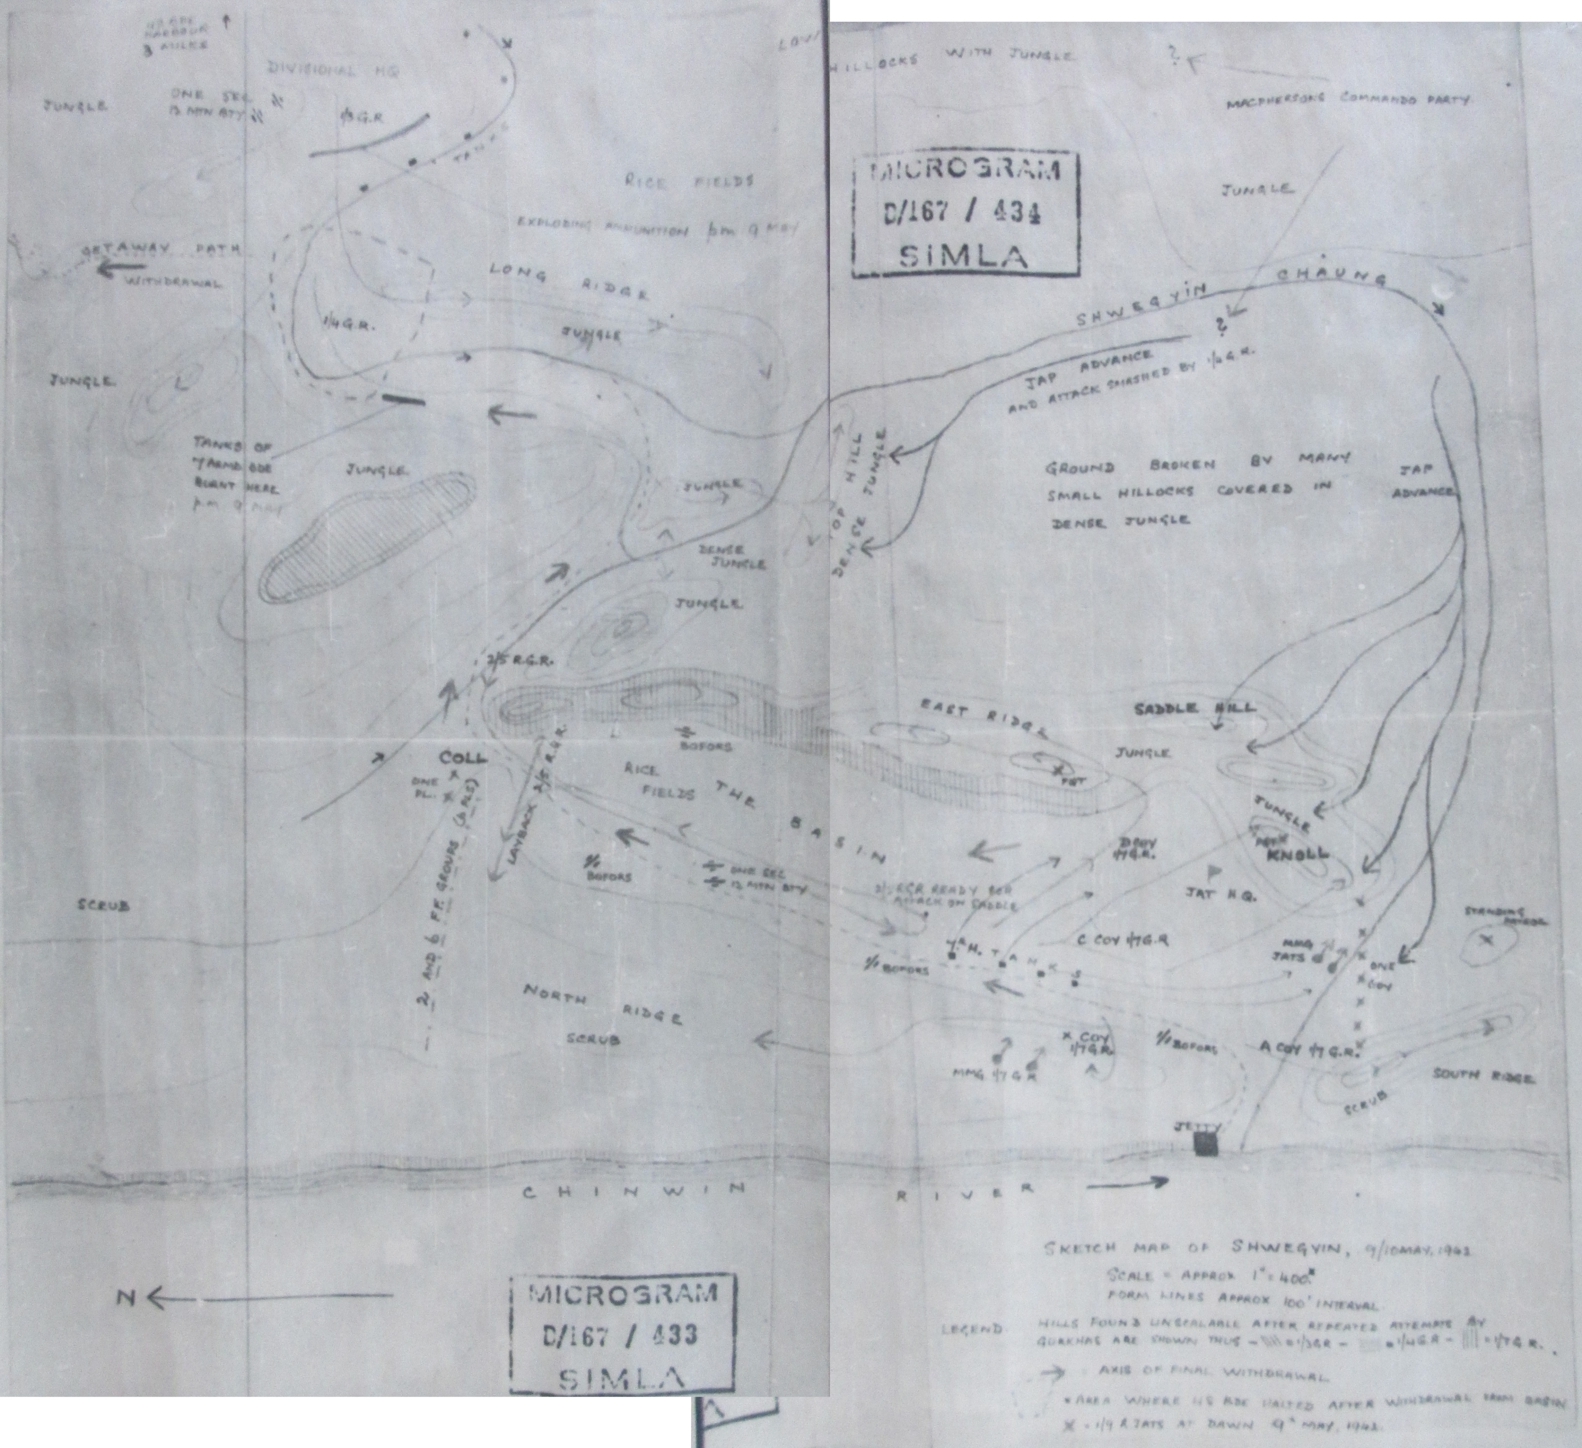 HARBOUR
3 MILES
DIVISIONAL HQ
JUNGLE
ONE SEC
12 MTN BTY
1/3 G.R.
TANKS
HILLOCKS WITH JUNGLE
?
MACPHERSONS COMMANDO PARTY
MICROGRAM
D/167 / 434
SIMLA
RICE FIELDS
JUNGLE
EXPLODING AMMUNITION pm 9 MAY
GETAWAY PATH
WITHDRAWAL
LONG RIDGE
SHWEGYIN CHAUNG
1/4 G.R.
JUNGLE
?
JAP ADVANCE
AND ATTACK SMASHED BY 1/4 G.R.
JUNGLE
TANKS OF
7 ARMD BDE
BURNT HERE
p.m. 9 MAY
JUNGLE
JUNGLE
TOP HILL
DENSE JUNGLE
GROUND BROKEN BY MANY
SMALL HILLOCKS COVERED IN
DENSE JUNGLE
JAP
ADVANCE
DENSE
JUNGLE
JUNGLE
2/5 R.G.R.
EAST RIDGE
SADDLE HILL
BOFORS
JUNGLE
COLL
ONE
PL.
RICE
FIELDS
THE BASIN
LAYBACK 2/5 R.G.R.
JUNGLE
KNOLL
D COY
1/7 G.R.
BOFORS
ONE SEC
12 MTN BTY
READY FOR
ATTACK ON SADDLE
JAT HQ.
SCRUB
2 AND 6 F.F. GROUPS
7 H. TANKS
C COY 1/7 G.R
MMG
JATS
ONE
COY
STANDING
BOFORS
NORTH RIDGE
SCRUB
COY
1/7 G.R.
BOFORS
A COY 1/7 G.R.
MMG 1/7 G R
SOUTH RIDGE
SCRUB
JETTY
CHINWIN RIVER
N
MICROGRAM
D/167 / 433
SIMLA
SKETCH MAP OF SHWEGYIN, 9/10 MAY, 1942
SCALE = APPROX 1" = 400ˣ
FORM LINES APPROX 100' INTERVAL
LEGEND HILLS FOUND UNSCALABLE AFTER REPEATED ATTEMPTS BY
GURKHAS ARE SHOWN THUS - = 1/3 GR - = 1/4 G.R - = 1/7 G.R.
AXIS OF FINAL WITHDRAWAL
AREA WHERE BDE HALTED AFTER WITHDRAWAL FROM BASIN
X - 1/9 R JATS AT DAWN 9ᵗʰ MAY, 1942